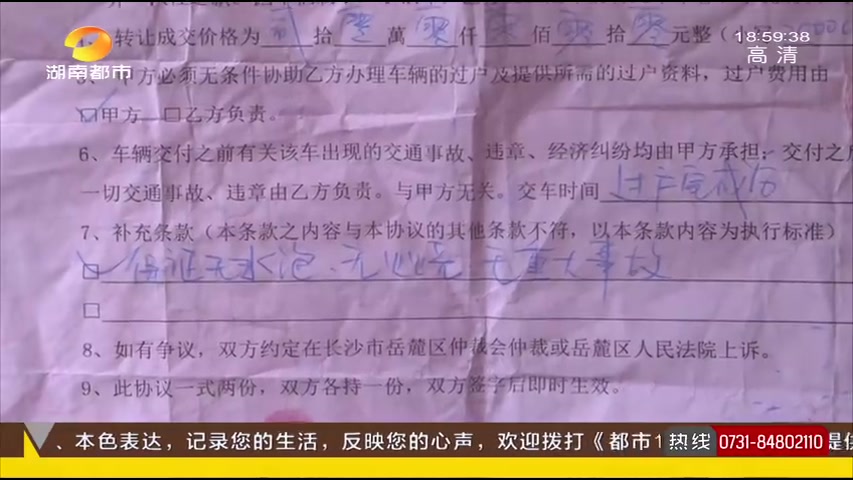 18:59:38
高清
湖南都市
转让成交价格为 贰 拾 零 萬 零 仟 零 佰 零 拾 零 元整（小
甲方必须无条件协助乙方办理车辆的过户及提供所需的过户资料，过户费用由
☑甲方 □乙方负责。
6、车辆交付之前有关该车出现的交通事故、违章、经济纠纷均由甲方承担；交付之后
一切交通事故、违章由乙方负责。与甲方无关。交车时间 过户完成后
7、补充条款（本条款之内容与本协议的其他条款不符，以本条款内容为执行标准）
☑ 保证无水泡、无火烧 无重大事故
□
8、如有争议，双方约定在长沙市岳麓区仲裁会仲裁或岳麓区人民法院上诉。
9、此协议一式两份，双方各持一份，双方签字后即时生效。
、本色表达，记录您的生活，反映您的心声，欢迎拨打《都市1 热线 0731-84802110 提供